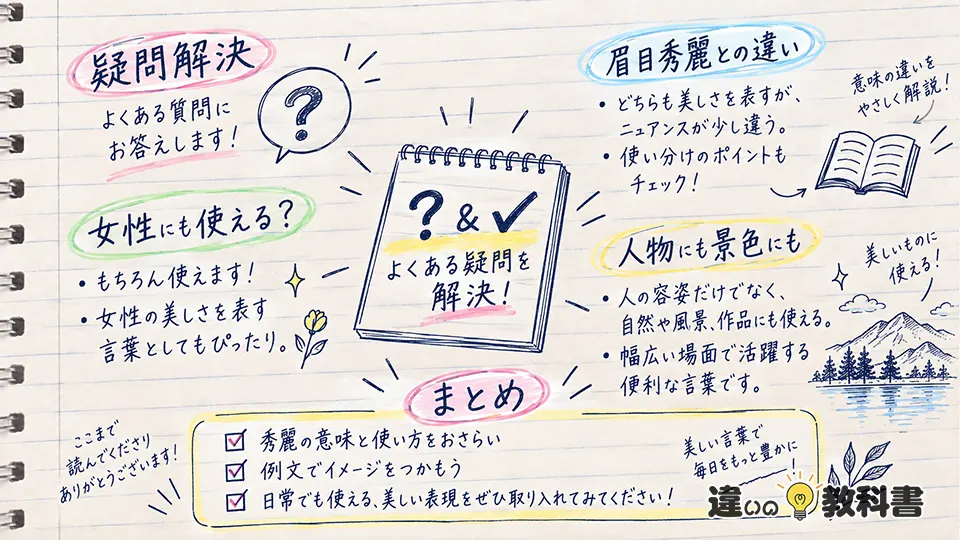 疑問解決
よくある質問に
お答えします！
?
女性にも使える？
・もちろん使えます！
・女性の美しさを表す
言葉としてもぴったり。
? & ✓
よくある疑問を
解決！
眉目秀麗との違い
・どちらも美しさを表すが、
ニュアンスが少し違う。
・使い分けのポイントも
チェック！
意味の違いを
やさしく解説！
人物にも景色にも
・人の容姿だけでなく、
自然や風景、作品にも使える。
・幅広い場面で活躍する
便利な言葉です。
美しいものに
使える！
まとめ
☑ 秀麗の意味と使い方をおさらい
☑ 例文でイメージをつかもう
☑ 日常でも使える、美しい表現をぜひ取り入れてみてください！
ここまで
読んでくださり
ありがとうございます！
美しい言葉で
毎日をもっと豊かに
！
違いの教科書